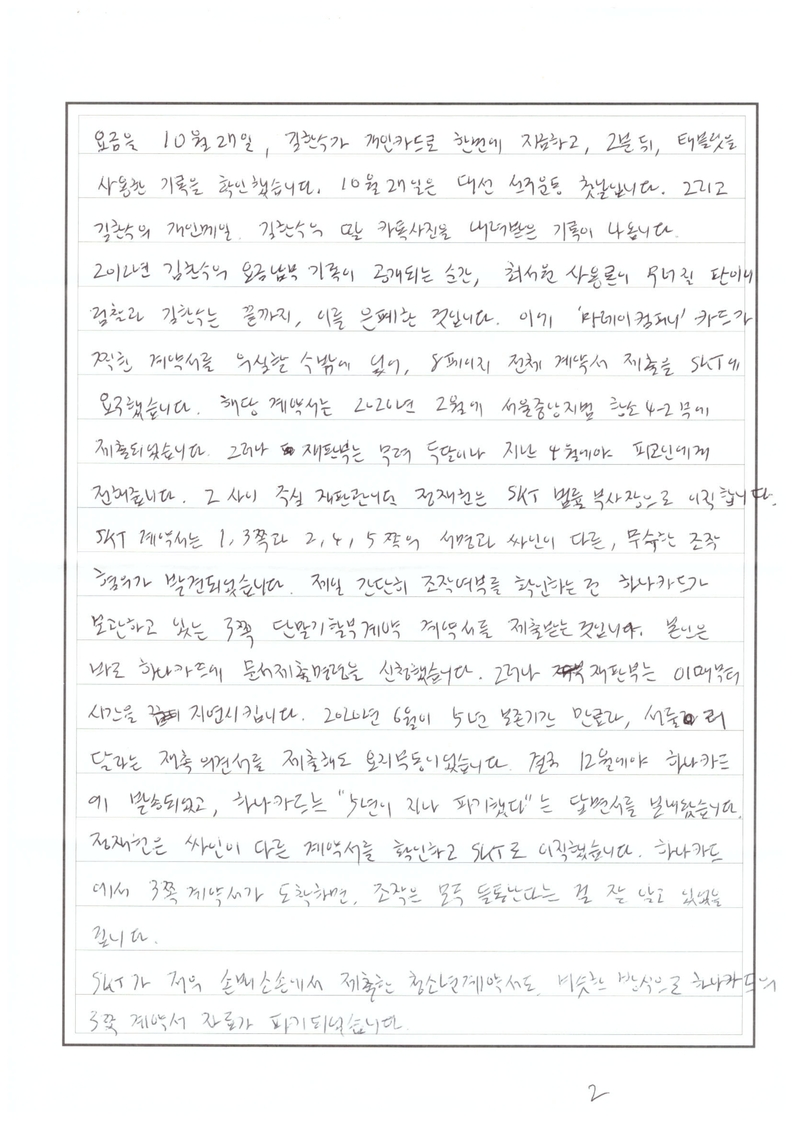 요금을 10월 27일, 김한수가 개인카드로 한번에 지급하고, 2분 뒤, 태블릿을
사용한 기록을 확인했습니다. 10월 27일은 대선 선거운동 첫날입니다. 그리고
김한수의 개인메일, 김한수의 딸 카톡사진을 내려받은 기록이 나옵니다.
2012년 김한수의 요금납부 기록이 공개되는 순간, 최서원 사용론이 무너질 판이니
검찰과 김한수는 끝까지, 이를 은폐한 것입니다. 이에 '마레이컴퍼니' 카드가
찍힌 계약서를 의심할 수밖에 없어, 8페이지 전체 계약서 제출을 SKT에
요구했습니다. 해당 계약서는 2020년 2월에 서울중앙지법 항소 4-2부에
제출되었습니다. 그러나 재판부는 무려 두달이나 지난 4월에야 피고인에게
전해줍니다. 그 사이 주심 재판관니던 정재헌은 SKT 법률 부사장으로 이직합니다.
SKT 계약서는 1, 3쪽과 2, 4, 5쪽의 서명과 싸인이 다른, 무수한 조작
혐의가 발견되었습니다. 제일 간단히 조작여부를 확인하는 건 하나카드가
보관하고 있는 3쪽 단말기할부계약 계약서를 제출받는 것입니다. 본인은
바로 하나카드에 문서제출명령을 신청했습니다. 그러나 재판부는 이때부터
시간을 지연시킵니다. 2020년 6월이 5년 보존기간 만료라, 서둘러
달라는 재촉 의견서를 제출해도 요지부동이었습니다. 결국 12월에야 하나카드
에 발송되었고, 하나카드는 "5년이 지나 파기했다"는 답변서를 보내왔습니다.
정재헌은 싸인이 다른 계약서를 확인하고 SKT로 이직했습니다. 하나카드
에서 3쪽 계약서가 도착하면, 조작은 모두 들통난다는 걸 잘 알고 있었을
겁니다.
SKT가 저의 손배소송에서 제출한 청소년계약서도, 비슷한 방식으로 하나카드의
3쪽 계약서 자료가 파기되었습니다.
2